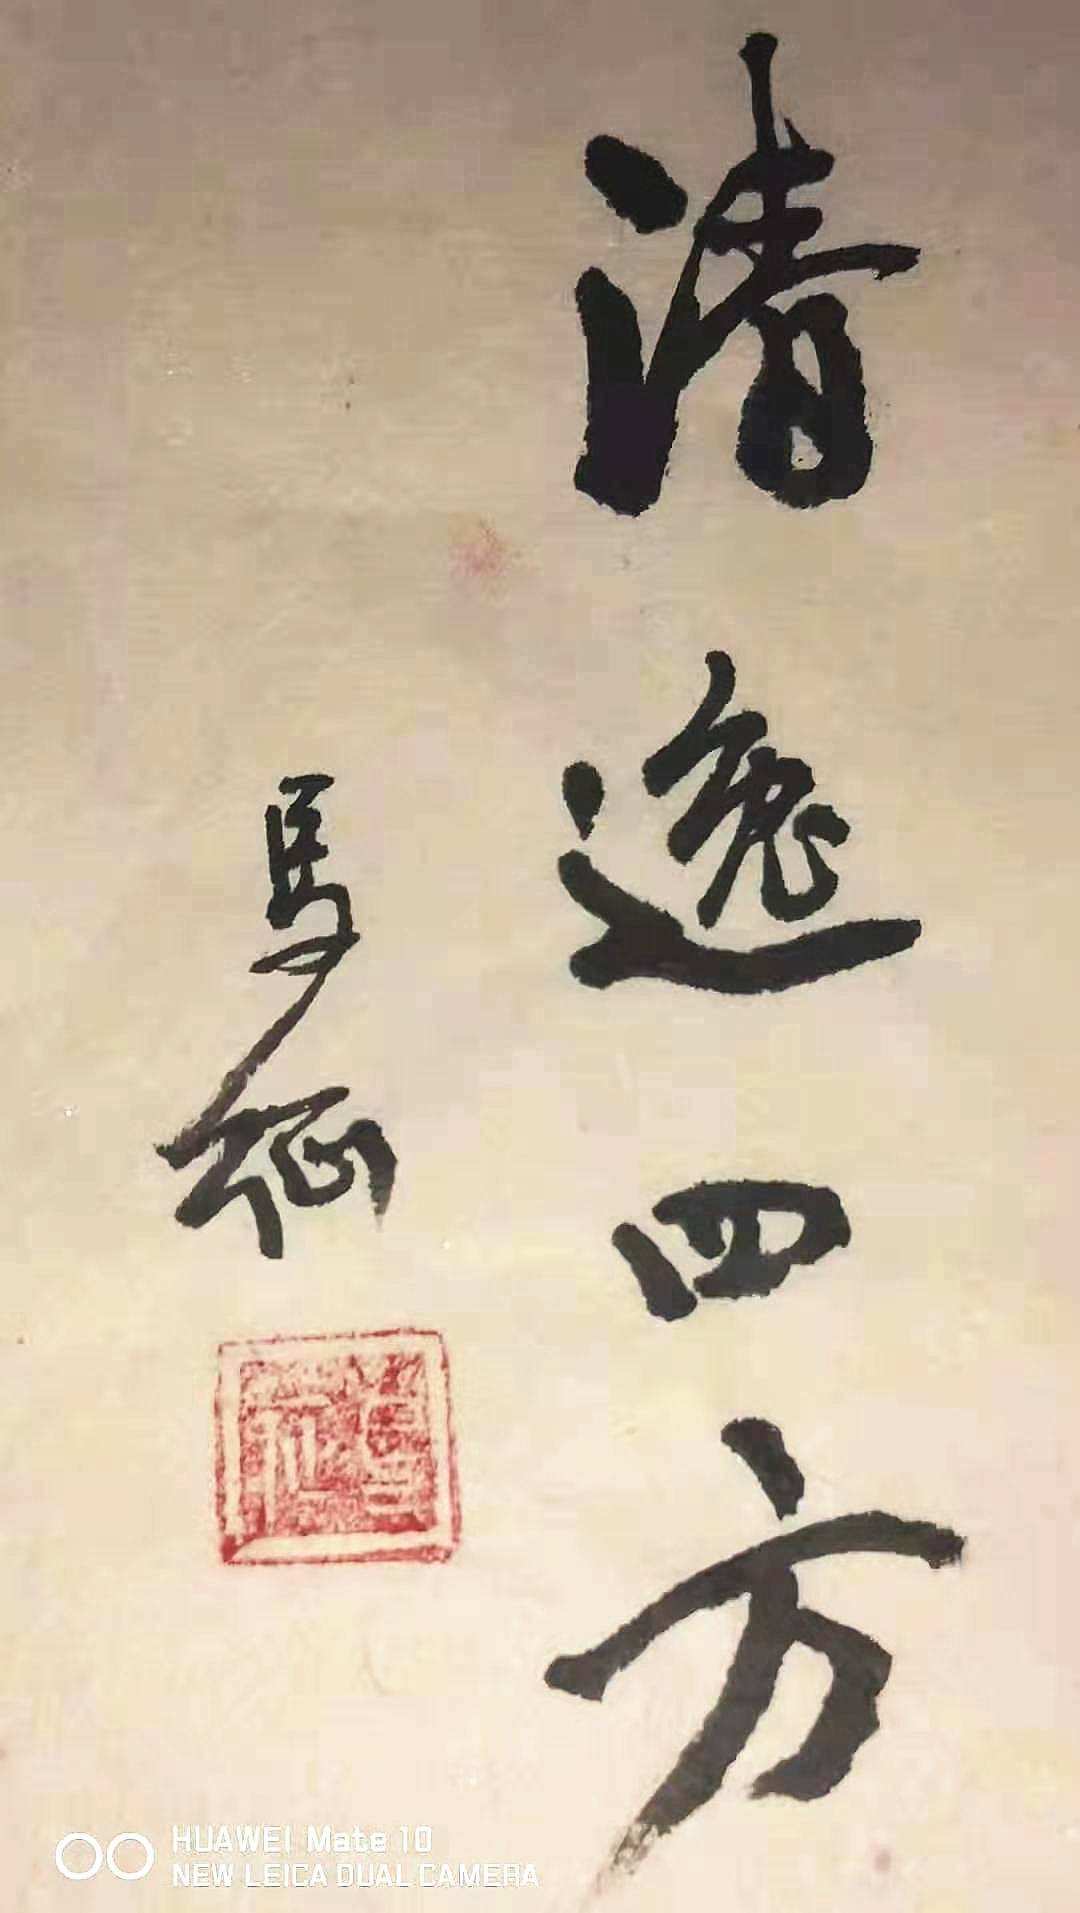 清逸四方
馬征
HUAWEI Mate 10
NEW LEICA DUAL CAMERA